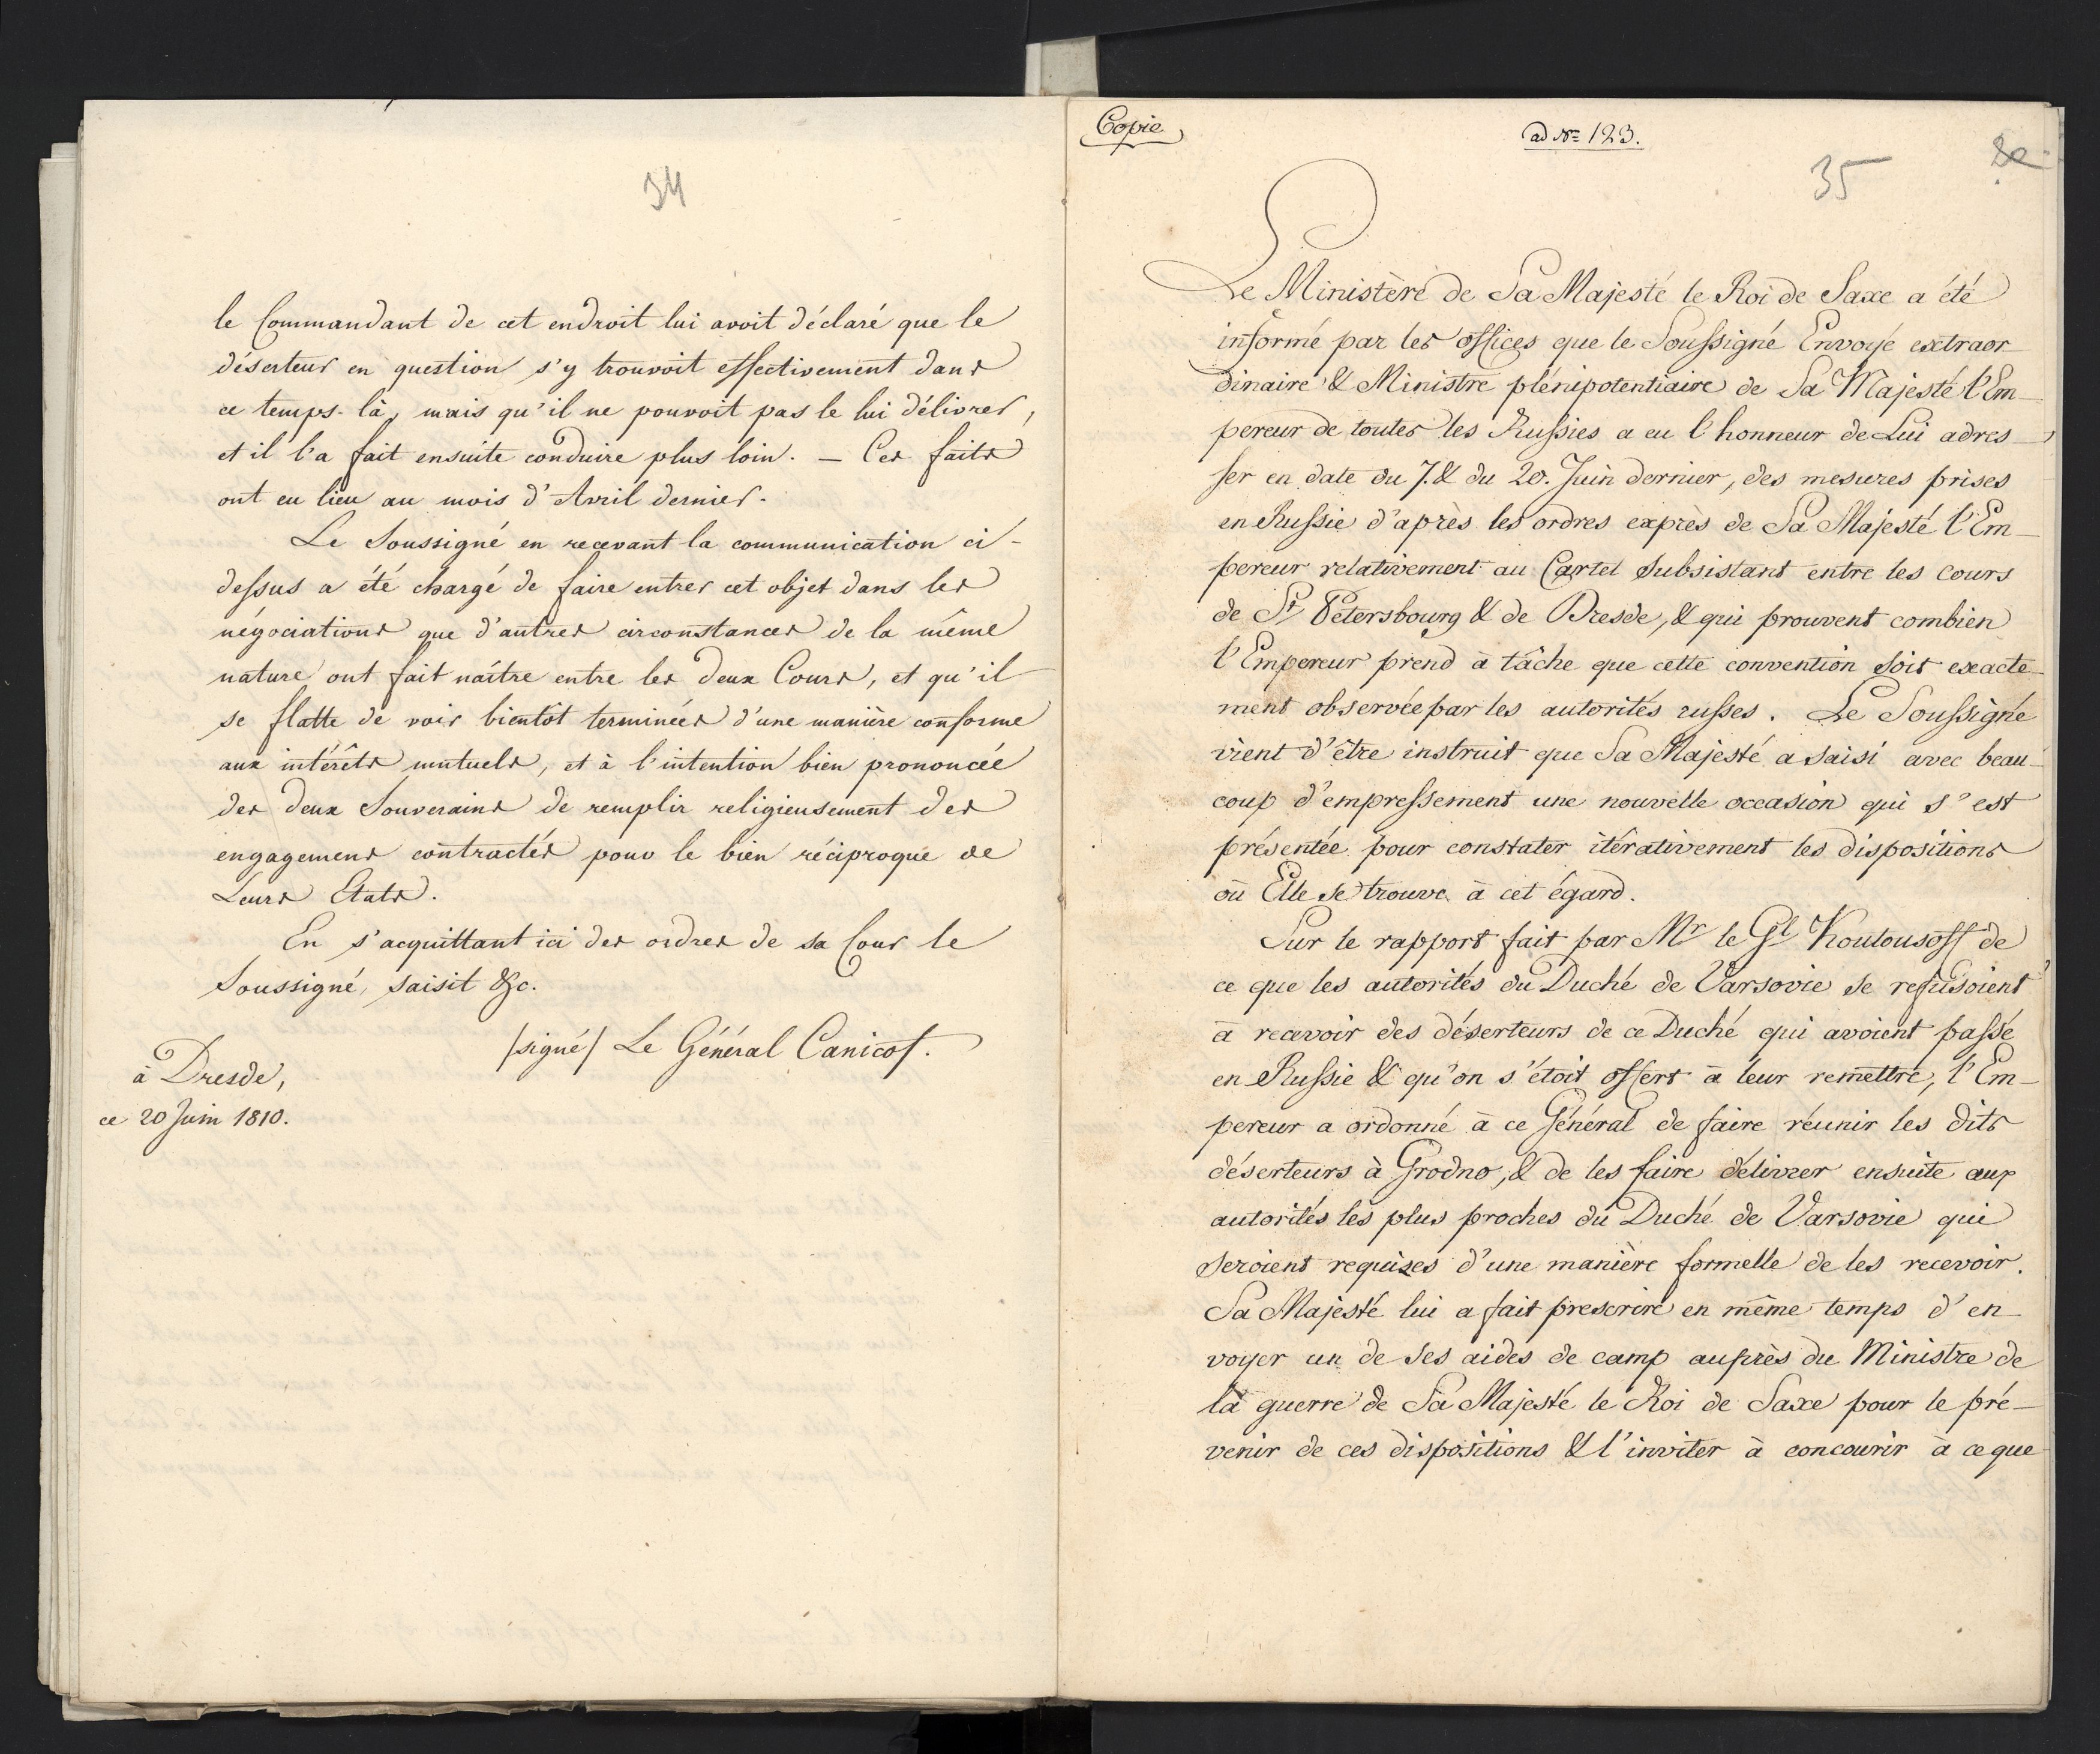 34
le Commandant de cet endroit lui avoit déclaré que le
déserteur en question s'y trouvoit effectivement dans
ce temps-là, mais qu'il ne pouvoit pas le lui délivrer,
et il l'a fait ensuite conduire plus loin. — Ces faits
ont eu lieu au mois d'Avril dernier.
Le Soussigné en recevant la communication ci-
dessus a été chargé de faire entrer cet objet dans les
négociations que d'autres circonstances de la même
nature ont fait naître entre les deux Cours, et qu'il
se flatte de voir bientôt terminées d'une manière conforme
aux intérêts mutuels, et à l'intention bien prononcée
des deux Souverains de remplir religieusement des
engagemens contractés pour le bien réciproque de
Leurs Etats.
En s'acquittant ici des ordres de sa Cour le
Soussigné, saisit &c.
/signé/ Le Général Canicof.
à Dresde,
ce 20 Juin 1810.
Copie
ad No 123.
35
Le Ministère de Sa Majesté le Roi de Saxe a été
informé par les offices que le Soussigné Envoyé extraor
dinaire & Ministre plénipotentiaire de Sa Majesté l'Em-
pereur de toutes les Russies a eu l'honneur de Lui adres-
ser en date du 7. & du 20. Juin dernier, des mesures prises
en Russie d'après les ordres exprès de Sa Majesté l'Em-
pereur relativement au Cartel subsistant entre les cours
de St Pétersbourg & de Dresde, & qui prouvent combien
l'Empereur prend à tâche que cette convention soit exacte-
ment observée par les autorités russes. Le Soussigné
vient d'être instruit que Sa Majesté a saisi avec beau-
coup d'empressement une nouvelle occasion qui s'est
présentée pour constater itérativement les dispositions
où Elle se trouve à cet égard.
Sur le rapport fait par Mr le Gl Koutousoff de
ce que les autorités du Duché de Varsovie se refusoient
à recevoir des déserteurs de ce Duché qui avoient passé
en Russie & qu'on s'étoit offert à leur remettre, l'Em-
pereur a ordonné à ce Général de faire réunir les dits
déserteurs à Grodno, & de les faire délivrer ensuite aux
autorités les plus proches du Duché de Varsovie qui
seroient requises d'une manière formelle de les recevoir.
Sa Majesté lui a fait prescrire en même temps d'en-
voyer un de ses aides de camp auprès du Ministre de
la guerre de Sa Majesté le Roi de Saxe pour le pré-
venir de ces dispositions & l'inviter à concourir à ce que